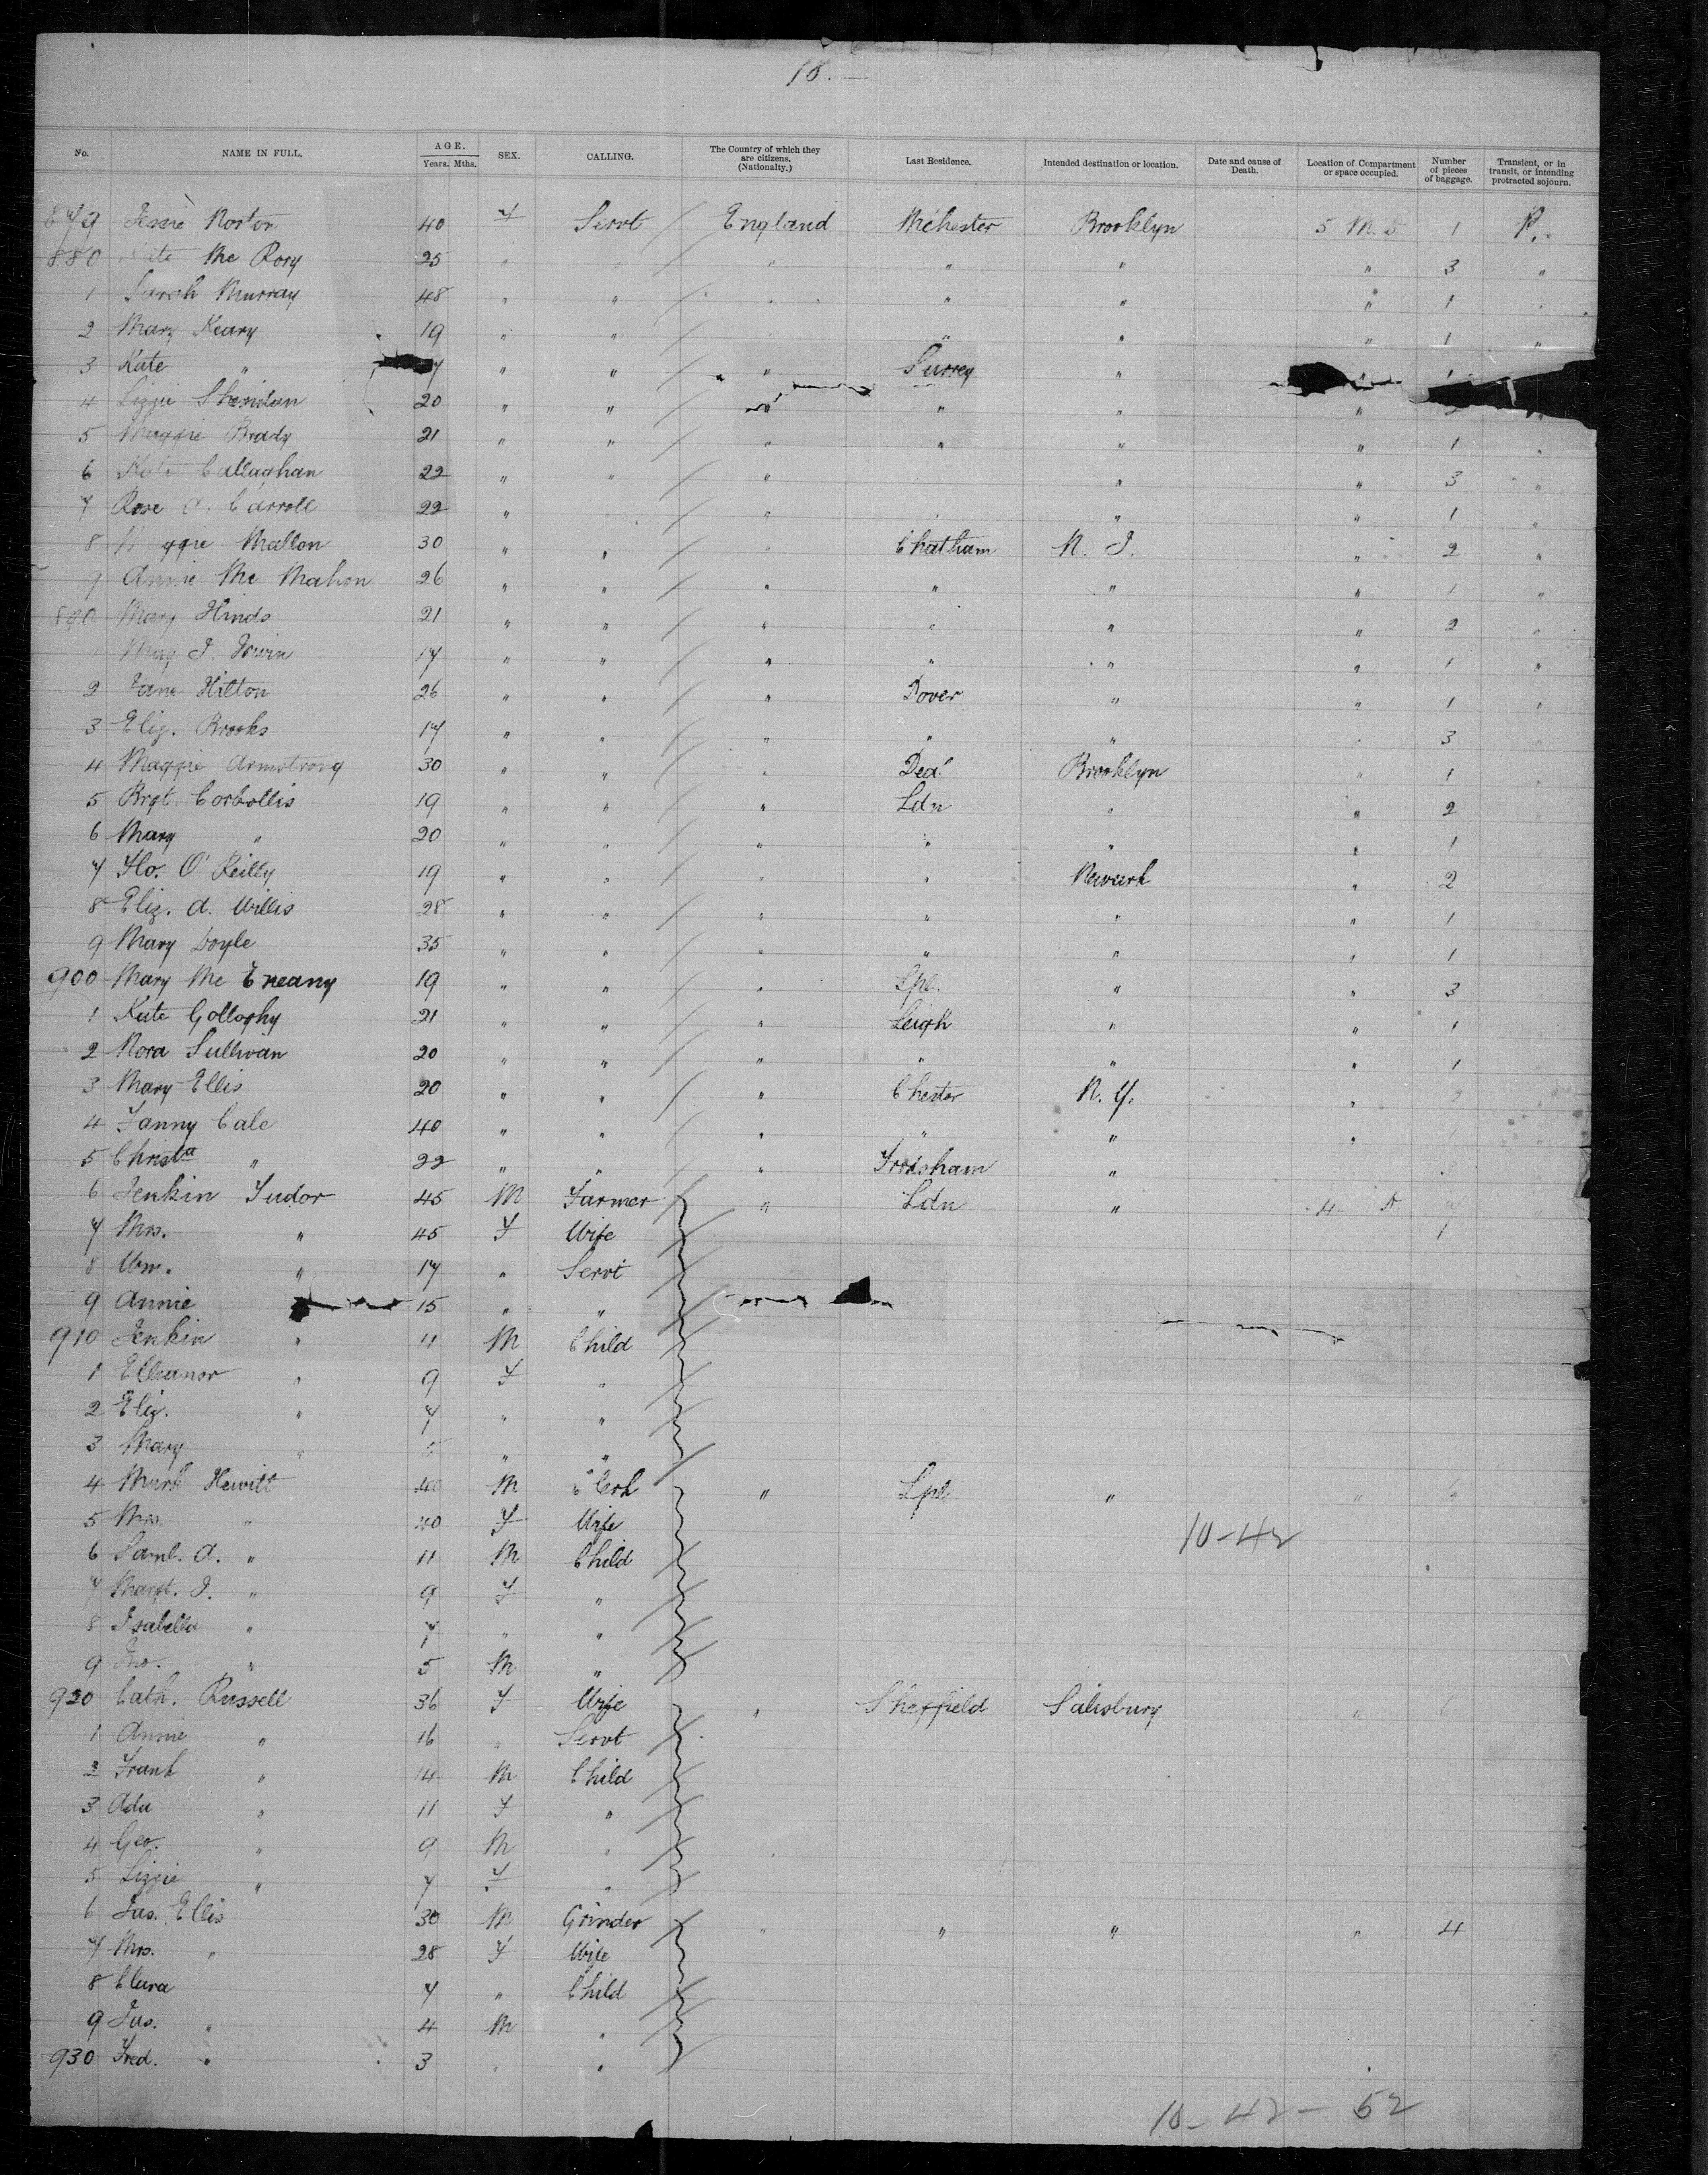 18. —
No. NAME IN FULL. AGE. Years. Mths. SEX. CALLING. The Country of which they are citizens. (Nationalty.) Last Residence. Intended destination or location. Date and cause of Death. Location of Compartment or space occupied. Number of pieces of baggage. Transient, or in transit, or intending protracted sojourn.
879 Jessie Norton 40 F Servt / England M'chester Brooklyn 5 M. D 1 P..
880 Kate Mc Rory 25 " " / " " " " 3 "
1 Sarah Murray 48 " " / " " " " 1 "
2 Mary Keary 19 " " / " " " " 1 "
3 Kate " " " / " Surrey "
4 Lizzie Sheridan 20 " " / " " " "
5 Maggie Brady 21 " " / " " " " 1 "
6 Kate Callaghan 22 " " / " " " 3 "
7 Rose A. Carroll 22 " / " " " 1 "
8 Mallon 30 " " / " Chatham N. J. " 2 "
9 Annie Mc Mahon 26 " " / " " " " 1 "
890 Mary Hinds 21 " " / " " " " 2 "
J. Irwin 17 " " / " " " " 1 "
2 Jane Hilton 26 " " / " Dover " " 1 "
3 Eliz. Brooks 17 " " / " " " " 3
4 Maggie Armstrong 30 " " / " Brooklyn " 1
5 Brgt. Corbollis 19 " " / " Ldn " " 2
6 Mary " 20 " " / " " " " 1
7 Flo. O'Reilly 19 " " / " " Newark " 2
8 Eliz. A. Willis 28 " " / " " " " 1
9 Mary Doyle 35 " " / " " " " 1
900 Mary Mc Eneany 19 " " / " Lpl. " " 3
1 Kate Golloghy 21 " " / " Leigh " " 1
2 Nora Sullivan 20 " " / " " " " 1
3 Mary Ellis 20 " " / " Chester N. Y. " 2
4 Fanny Cale 40 " " / " " " "
5 Christa " 22 " " / " Frodsham "
6 Jenkin Tudor 45 M Farmer / " Ldn " 4
7 Mrs. " 45 F Wife / 1
8 Wm. " 17 " Servt /
9 Annie " 15 " " /
910 Jenkin " 11 M Child /
1 Elleanor " 9 F " /
2 Eliz. " 7 " " /
3 Mary " 5 " " /
4 Mark Hewitt 40 M Clerk / " Lpl. " "
5 Mrs. " 40 F Wife / 10-42
6 Saml. A. " 11 M Child /
7 Margt. J. " 9 F " /
8 Isabella " 7 " " /
9 Jno. " 5 M " /
920 Cath. Russell 36 F Wife / " Sheffield Salisbury "
1 Annie " 16 " Servt /
2 Frank " 14 M Child /
3 Ada " 11 F " /
4 Geo. " 9 M " /
5 Lizzie " 7 F " /
6 Jas. Ellis 30 M Grinder / " " " " 4
7 Mrs. " 28 F Wife /
8 Clara 7 " Child /
9 Jas. " 4 M " /
930 Fred. " 3 " " /
10-42-52